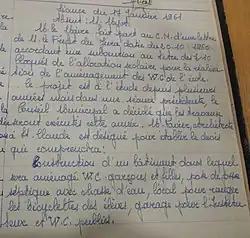 Séance du 17 Janvier 1961
M. le Maire fait part au C.M. d'une lettre
de M. le Préfet du Jura datée du 30-10-1960
accordant une subvention au titre des
bloqués de l'allocation scolaire pour la réali-
sation de l'aménagement des W.C. de l'école.
Le projet est à l'étude depuis plusieurs
années et dans une séance précédente, le
Conseil Municipal a décidé que les travaux
seraient exécutés cette année. M. architecte
à St Claude est désigné pour établir le devis
qui comprendra:
Construction d'un bâtiment dans lequel
sera aménagé W.C. garçons et filles, pose de fosse
septique avec chasse d'eau, local pour ranger
les bicyclettes des élèves, garage pour l'Institu-
teur et W.C. publics.